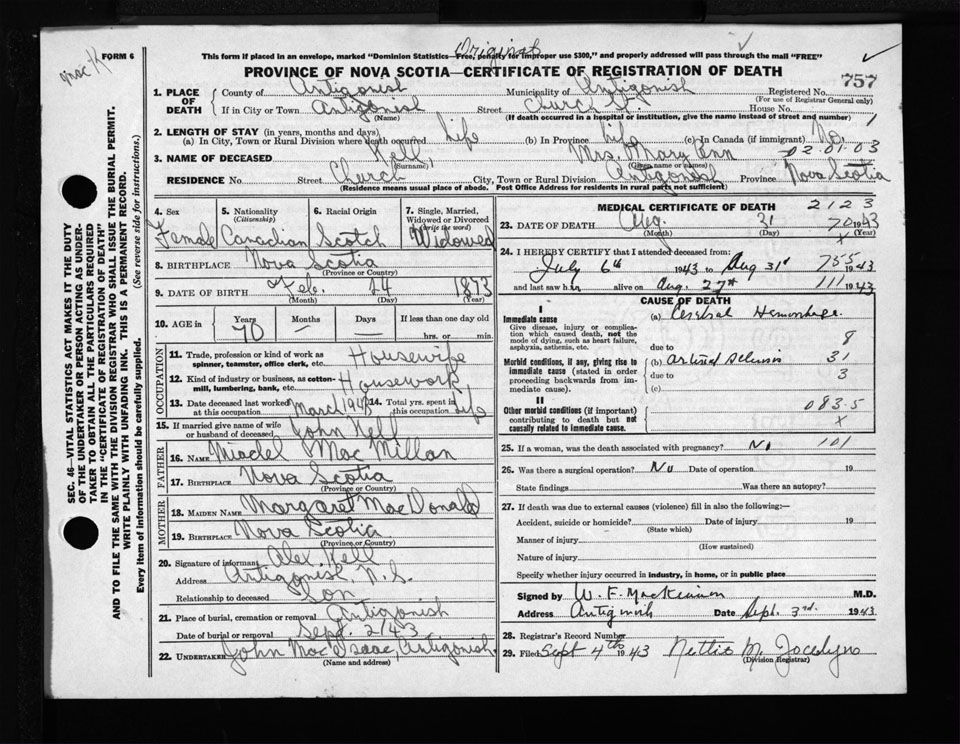 Original
FORM 6
This form if placed in an envelope, marked "Dominion Statistics—Free, penalty for improper use $300," and properly addressed will pass through the mail "FREE"
PROVINCE OF NOVA SCOTIA—CERTIFICATE OF REGISTRATION OF DEATH
757
1. PLACE OF DEATH County of Antigonish Municipality of Antigonish Registered No.
(For use of Registrar General only)
If in City or Town Antigonish Street Church St House No. 1
(Name) (If death occurred in a hospital or institution, give the name instead of street and number)
2. LENGTH OF STAY (in years, months and days)
(a) In City, Town or Rural Division where death occurred Life (b) In Province Life (c) In Canada (if immigrant) No.
02.01.03
3. NAME OF DECEASED Kell Mrs. Mary Ann
(Surname) (Given name or names)
RESIDENCE No. Street Church City, Town or Rural Division Antigonish Province Nova Scotia
(Residence means usual place of abode. Post Office Address for residents in rural parts not sufficient)
SEC. 46—VITAL STATISTICS ACT MAKES IT THE DUTY
OF THE UNDERTAKER OR PERSON ACTING AS UNDER-
TAKER TO OBTAIN ALL THE PARTICULARS REQUIRED
IN THE "CERTIFICATE OF REGISTRATION OF DEATH"
AND TO FILE THE SAME WITH THE DIVISION REGISTRAR WHO SHALL ISSUE THE BURIAL PERMIT.
WRITE PLAINLY WITH UNFADING INK. THIS IS A PERMANENT RECORD.
Every item of information should be carefully supplied. (See reverse side for instructions.)
4. Sex 5. Nationality (Citizenship) 6. Racial Origin 7. Single, Married, Widowed or Divorced (write the word)
Female Canadian Scotch Widowed
8. BIRTHPLACE Nova Scotia
(Province or Country)
9. DATE OF BIRTH Feb. 14 1873
(Month) (Day) (Year)
10. AGE in Years Months Days If less than one day old
70 — — hrs. or min.
OCCUPATION
11. Trade, profession or kind of work as spinner, teamster, office clerk, etc. Housewife
12. Kind of industry or business, as cotton-mill, lumbering, bank, etc. Housework
13. Date deceased last worked at this occupation March 1943 14. Total yrs. spent in this occupation Life
15. If married give name of wife or husband of deceased John Kell
FATHER
16. NAME MacMillan
17. BIRTHPLACE Nova Scotia
(Province or Country)
MOTHER
18. MAIDEN NAME Margaret MacDonald
19. BIRTHPLACE Nova Scotia
(Province or Country)
20. Signature of informant Alex Kell
Address Antigonish, N.S.
Relationship to deceased Son
21. Place of burial, cremation or removal Antigonish
Date of burial or removal Sept. 2/43
22. UNDERTAKER John MacIsaac, Antigonish
(Name and address)
MEDICAL CERTIFICATE OF DEATH 2123
23. DATE OF DEATH Aug. 31 1943
70
(Month) (Day) (Year)
x
24. I HEREBY CERTIFY that I attended deceased from:
July 6th 1943 to Aug 31st 1943
755
and last saw her alive on Aug. 27th 1943
111
CAUSE OF DEATH
I
Immediate cause (a) Cerebral Hemorrhage.
Give disease, injury or complication which caused death, not the mode of dying, such as heart failure, asphyxia, asthenia, etc.
due to 8
Morbid conditions, if any, giving rise to immediate cause (stated in order proceeding backwards from immediate cause).
(b) 31
due to 3
(c)
II
Other morbid conditions (if important) contributing to death but not causally related to immediate cause.
083.5
x
25. If a woman, was the death associated with pregnancy? No 101
26. Was there a surgical operation? No Date of operation 19
State findings Was there an autopsy?
27. If death was due to external causes (violence) fill in also the following:—
Accident, suicide or homicide? Date of injury 19
(State which)
Manner of injury
(How sustained)
Nature of injury
Specify whether injury occurred in industry, in home, or in public place
Signed by W. F. MacKinnon M.D.
Address Antigonish Date Sept. 3rd. 1943
28. Registrar's Record Number
29. Filed Sept 4th 1943 Nettie M. Jocelyn
(Division Registrar)